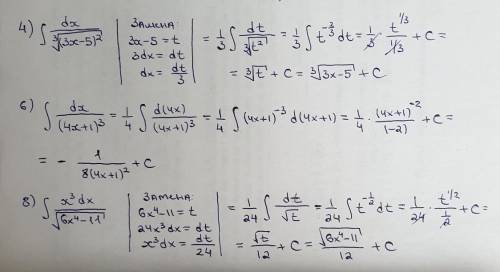 4) ∫ dx / ∛(3x-5)² | Замена: 3x-5 = t, 3dx = dt, dx = dt/3 | = 1/3 ∫ dt / ∛t² = 1/3 ∫ t^(-2/3) dt = 1/3 · t^(1/3) / (1/3) + C =
= ∛t + C = ∛(3x-5) + C
6) ∫ dx / (4x+1)³ = 1/4 ∫ d(4x) / (4x+1)³ = 1/4 ∫ (4x+1)^(-3) d(4x+1) = 1/4 · (4x+1)^(-2) / (-2) + C =
= - 1 / 8(4x+1)² + C
8) ∫ x³dx / √(6x⁴-11) | Замена: 6x⁴-11 = t, 24x³dx = dt, x³dx = dt/24 | = 1/24 ∫ dt / √t = 1/24 ∫ t^(-1/2) dt = 1/24 · t^(1/2) / (1/2) + C =
= √t / 12 + C = √(6x⁴-11) / 12 + C